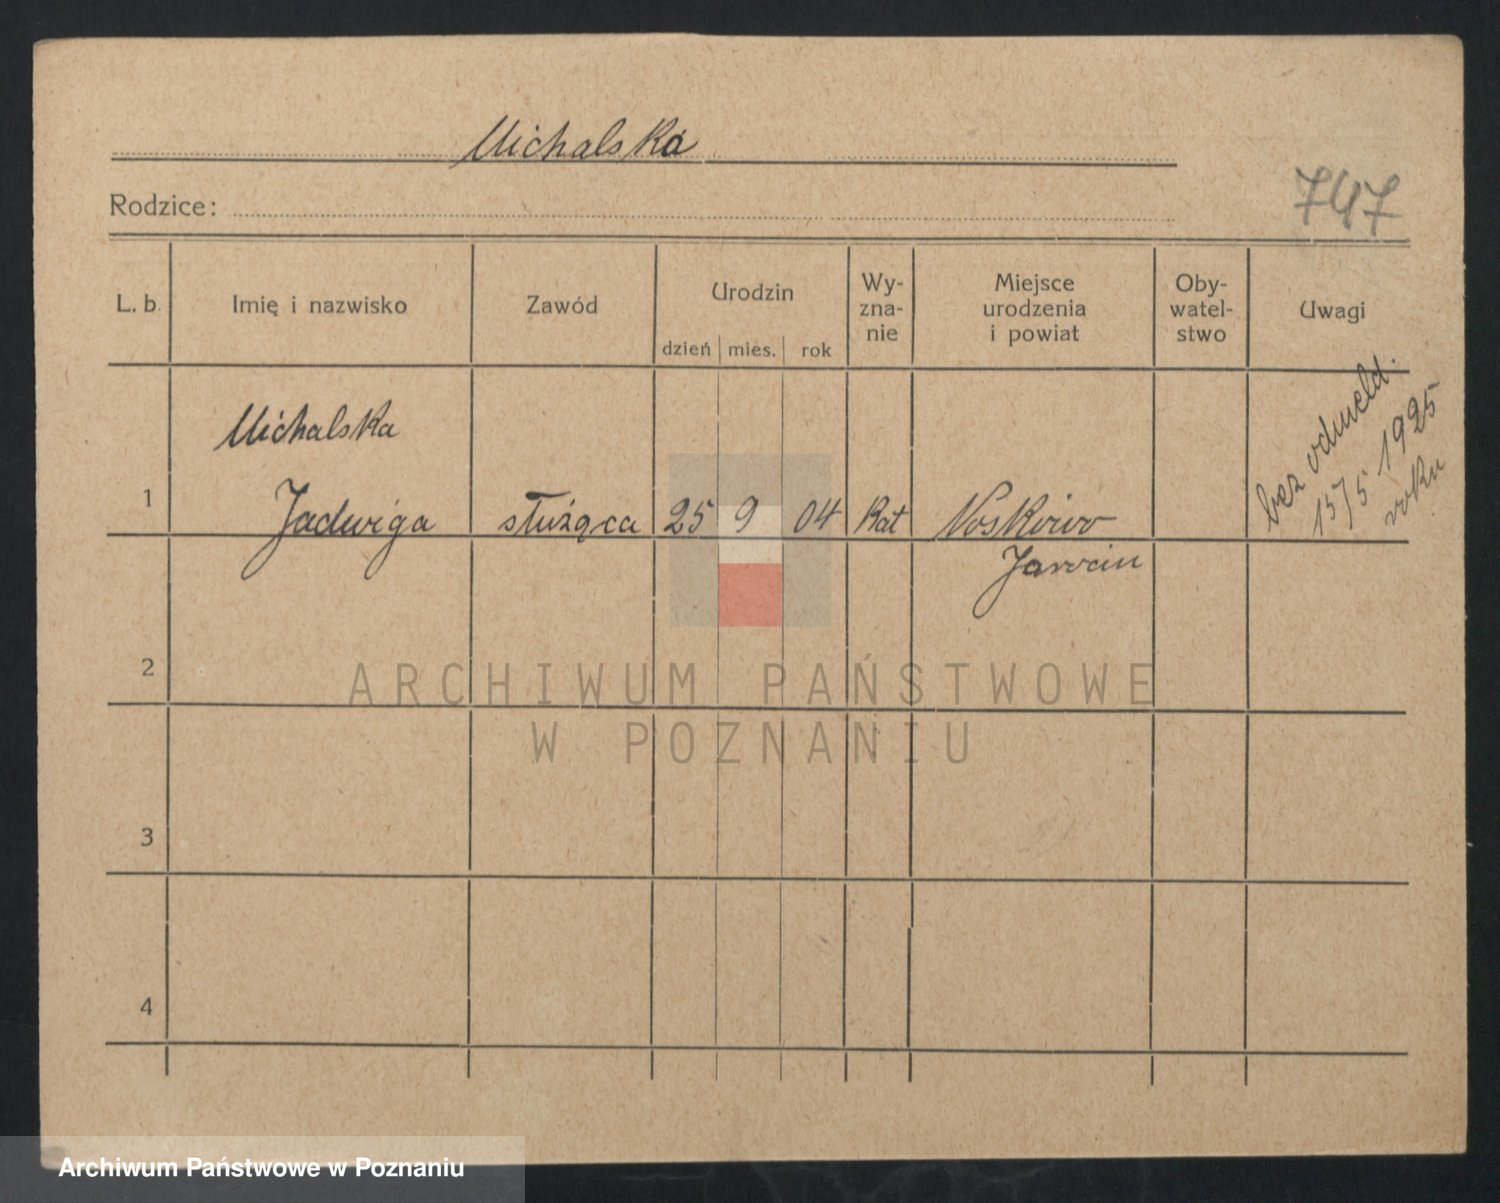 Michalska
747
Rodzice:
L. b. Imię i nazwisko Zawód Urodzin dzień mies. rok Wy-zna-nie Miejsce urodzenia i powiat Oby-watel-stwo Uwagi
Michalska
1 Jadwiga służąca 25 9 04 Kat Noskowo
Jarocin
bez odmeld.
15/5 1925
roku
2
3
4
ARCHIWUM PAŃSTWOWE
W POZNANIU
Archiwum Państwowe w Poznaniu